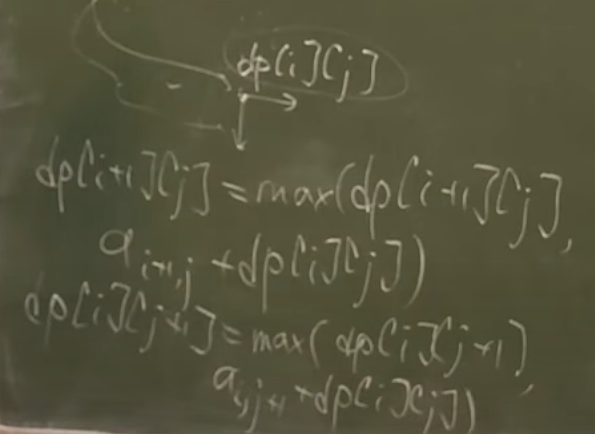 dp[i][j]
dp[i+1][j] = max(dp[i+1][j],
a_{i+1,j} + dp[i][j])
dp[i][j+1] = max(dp[i][j+1],
a_{i,j+1} + dp[i][j])